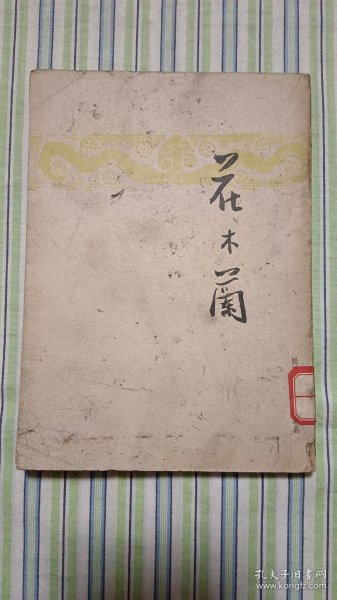 花木蘭
孔夫子旧书网
www.kongfz.com